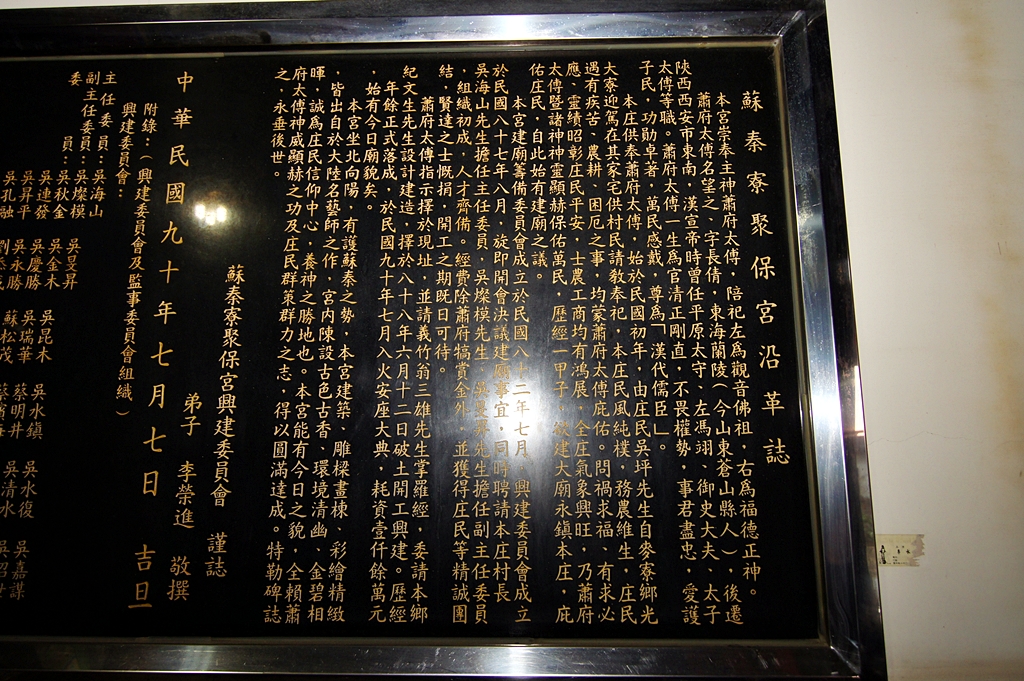 蘇秦寮聚保宮沿革誌
本宮崇奉主神蕭府太傅，陪祀左為觀音佛祖，右為福德正神。
蕭府太傅名望之、字長倩，東海蘭陵（今山東蒼山縣人），後遷
陝西西安市東南，漢宣帝時曾任平原太守、左馮翊、御史大夫、太子
太傅等職。蕭府太傅一生為官清正剛直，不畏權勢，事君盡忠，愛護
子民，功勛卓著，萬民感戴，尊為「漢代儒臣」。
本庄供奉蕭府太傅，始於民國初年，由庄民吳坪先生自麥寮鄉光
大寮迎駕在其家宅供村民請敎奉祀，本庄民風純樸，務農維生，庄民
遇有疾苦、農耕、困厄之事，均蒙蕭府太傅庇佑。問禍求福、有求必
應、靈績昭彰庄民平安，士農工商均有鴻展，全庄氣象興旺，乃蕭府
太傅暨諸神神靈顯赫保佑萬民，歷經一甲子，欲建大廟永鎮本庄，庇
佑庄民，自此始有建廟之議。
本宮建廟籌備委員會成立於民國八十二年七月，興建委員會成立
於民國八十七年八月，旋即開會決議建廟事宜，同時聘請本庄村長
吳海山先生擔任主任委員，吳燦模先生、吳先生擔任副主任委員
，組織初成，人才齊備。經費除蕭府犒賞金外，並獲得庄民等精誠團
結，賢達之士慨捐，開工之期既日可待。
蕭府太傅指示擇於現址，並請義竹翁三雄先生掌羅經，委請本鄉
紀文生先生設計建造，擇於八十八年六月十二日破土開工興建。歷經
年餘正式落成，於民國九十年七月八火安座大典，耗資壹仟餘萬元
，始有今日廟貌矣。
本宮坐北向陽，有護蘇秦之勢，本宮建築、雕樑畫棟、彩繪精緻
，皆出自於大陸名藝師之作，宮內陳設古色古香、環境清幽、金碧相
暉，誠為庄民信仰中心，養神之勝地也。本宮能有今日之貌，全賴蕭
府太傅神威顯赫之功及庄民群策群力之志，得以圓滿達成。特勒碑誌
之，永垂後世。
蘇秦寮聚保宮興建委員會 謹誌
弟子 李榮進 敬撰
中華民國九十年七月七日 吉旦
附錄：（興建委員會及監事委員會組織）
興建委員會：
主任委員：吳海山
副主任委員：吳燦模
委員：吳秋金 吳旻昇 吳昆木 吳水鎮 吳水復 吳嘉謀
吳連發 吳金木 吳瑞華 蔡明井 吳清水
吳昇平 吳慶勝 蘇松茂
吳孔融 吳永勝